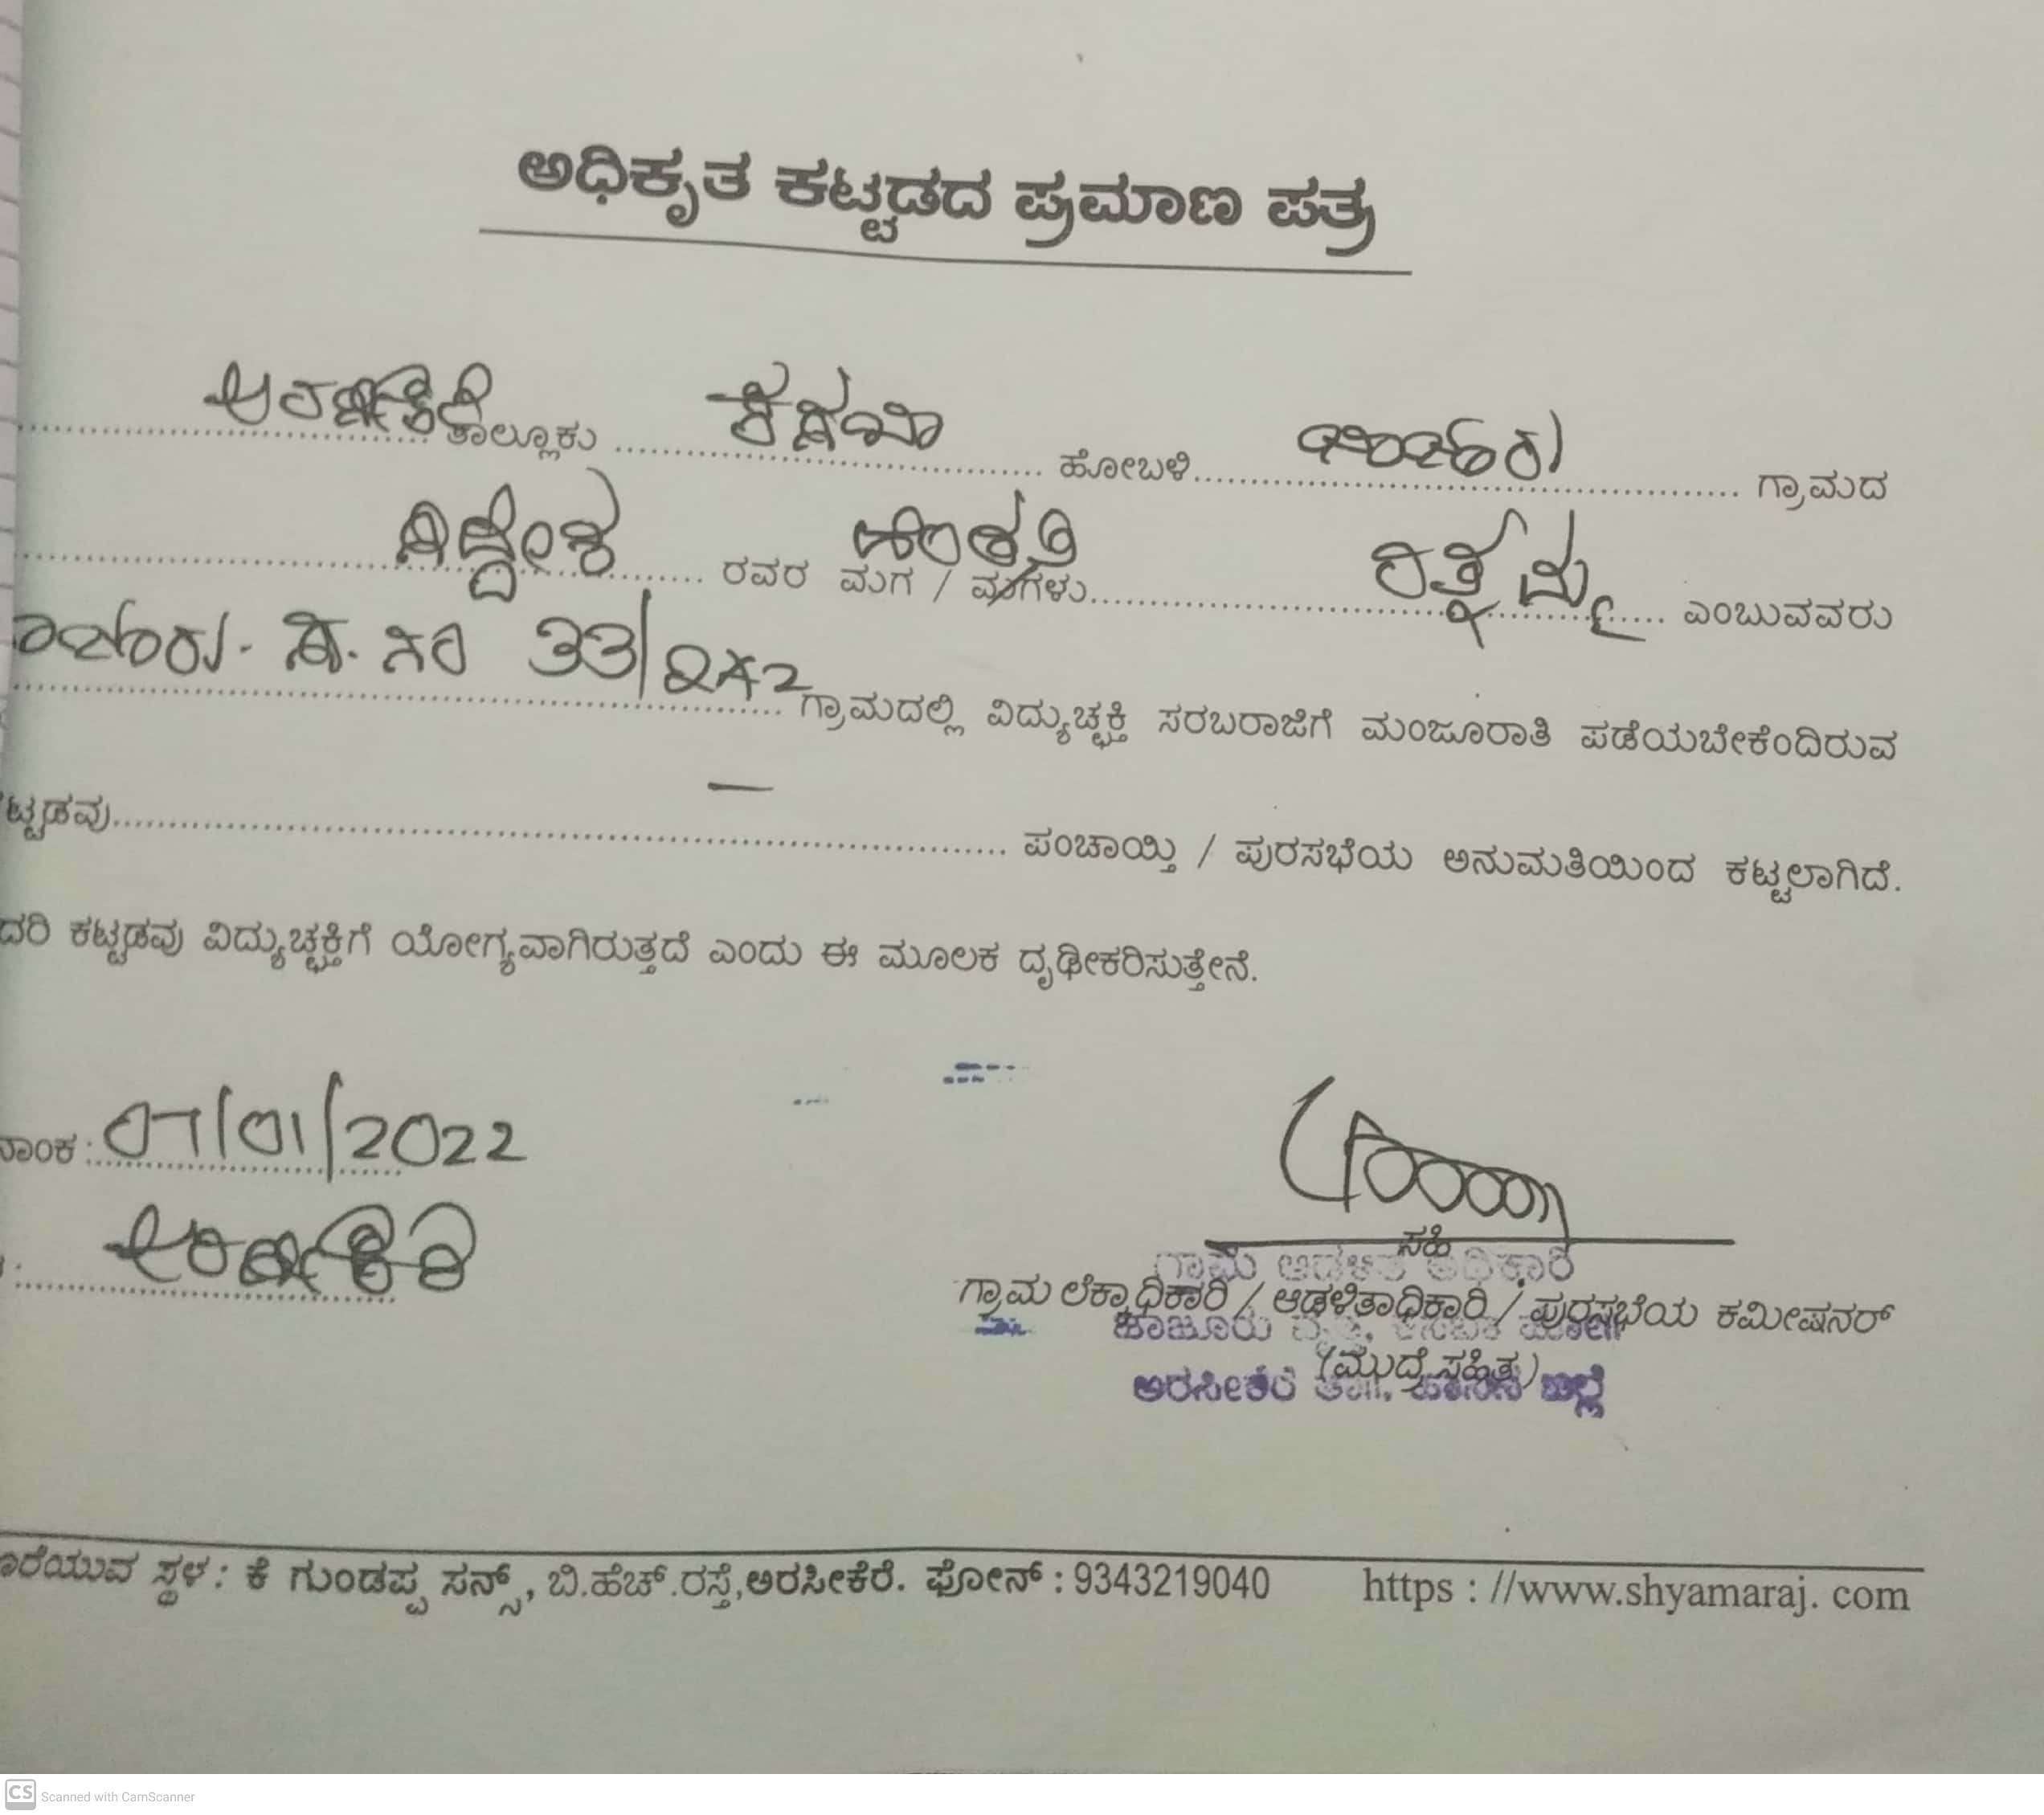 ಅಧಿಕೃತ ಕಟ್ಟಡದ ಪ್ರಮಾಣ ಪತ್ರ
ಅರಸೀಕೆರೆ ತಾಲ್ಲೂಕು ಕಸಬಾ ಹೋಬಳಿ ಗ್ರಾಮದ
ಸಿದ್ದೇಶ ರವರ ಮಗ / ಮಗಳು ಎಂಬುವವರು
33/ ಗ್ರಾಮದಲ್ಲಿ ವಿದ್ಯುಚ್ಛಕ್ತಿ ಸರಬರಾಜಿಗೆ ಮಂಜೂರಾತಿ ಪಡೆಯಬೇಕೆಂದಿರುವ
ಟ್ಟಡವು ಪಂಚಾಯ್ತಿ / ಪುರಸಭೆಯ ಅನುಮತಿಯಿಂದ ಕಟ್ಟಲಾಗಿದೆ.
ದರಿ ಕಟ್ಟಡವು ವಿದ್ಯುಚ್ಛಕ್ತಿಗೆ ಯೋಗ್ಯವಾಗಿರುತ್ತದೆ ಎಂದು ಈ ಮೂಲಕ ದೃಢೀಕರಿಸುತ್ತೇನೆ.
ನಾಂಕ : 07/01/2022
: ಅರಸೀಕೆರೆ
ಸಹಿ
ಗ್ರಾಮ ಆಡಳಿತ ಅಧಿಕಾರಿ
ಗ್ರಾಮ ಲೆಕ್ಕಾಧಿಕಾರಿ / ಆಡಳಿತಾಧಿಕಾರಿ / ಪುರಸಭೆಯ ಕಮೀಷನರ್
(ಮುದ್ರೆ ಸಹಿತ)
ಅರಸೀಕೆರೆ ತಾ||, ಹಾಸನ ಜಿಲ್ಲೆ
ೊರೆಯುವ ಸ್ಥಳ : ಕೆ ಗುಂಡಪ್ಪ ಸನ್ಸ್, ಬಿ.ಹೆಚ್.ರಸ್ತೆ,ಅರಸೀಕೆರೆ. ಫೋನ್ : 9343219040 https : //www.shyamaraj. com
CS Scanned with CamScanner